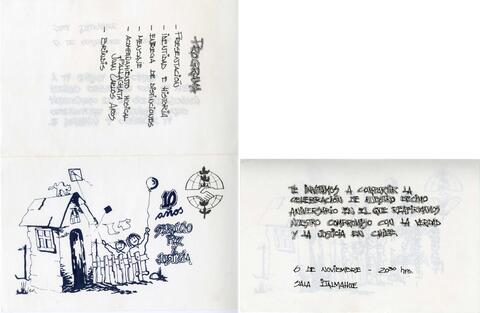 PROGRAMA
- PRESENTACIÓN
- IDENTIDAD E HISTORIA
- ENTREGA DE DISTINCIONES
- MENSAJE
- ACOMPAÑAMIENTO MUSICAL
ILLAGHATA
JUAN CARLOS
- BRINDIS
10
años
SERVICIO
PAZ
Y
JUSTICIA
TE INVITAMOS A COMPARTIR LA
CELEBRACIÓN DE NUESTRO DÉCIMO
ANIVERSARIO EN EL QUE REAFIRMAMOS
NUESTRO COMPROMISO CON LA VERDAD
Y LA JUSTICIA EN CHILE.
6 DE NOVIEMBRE - 20:30 hrs.
SALA